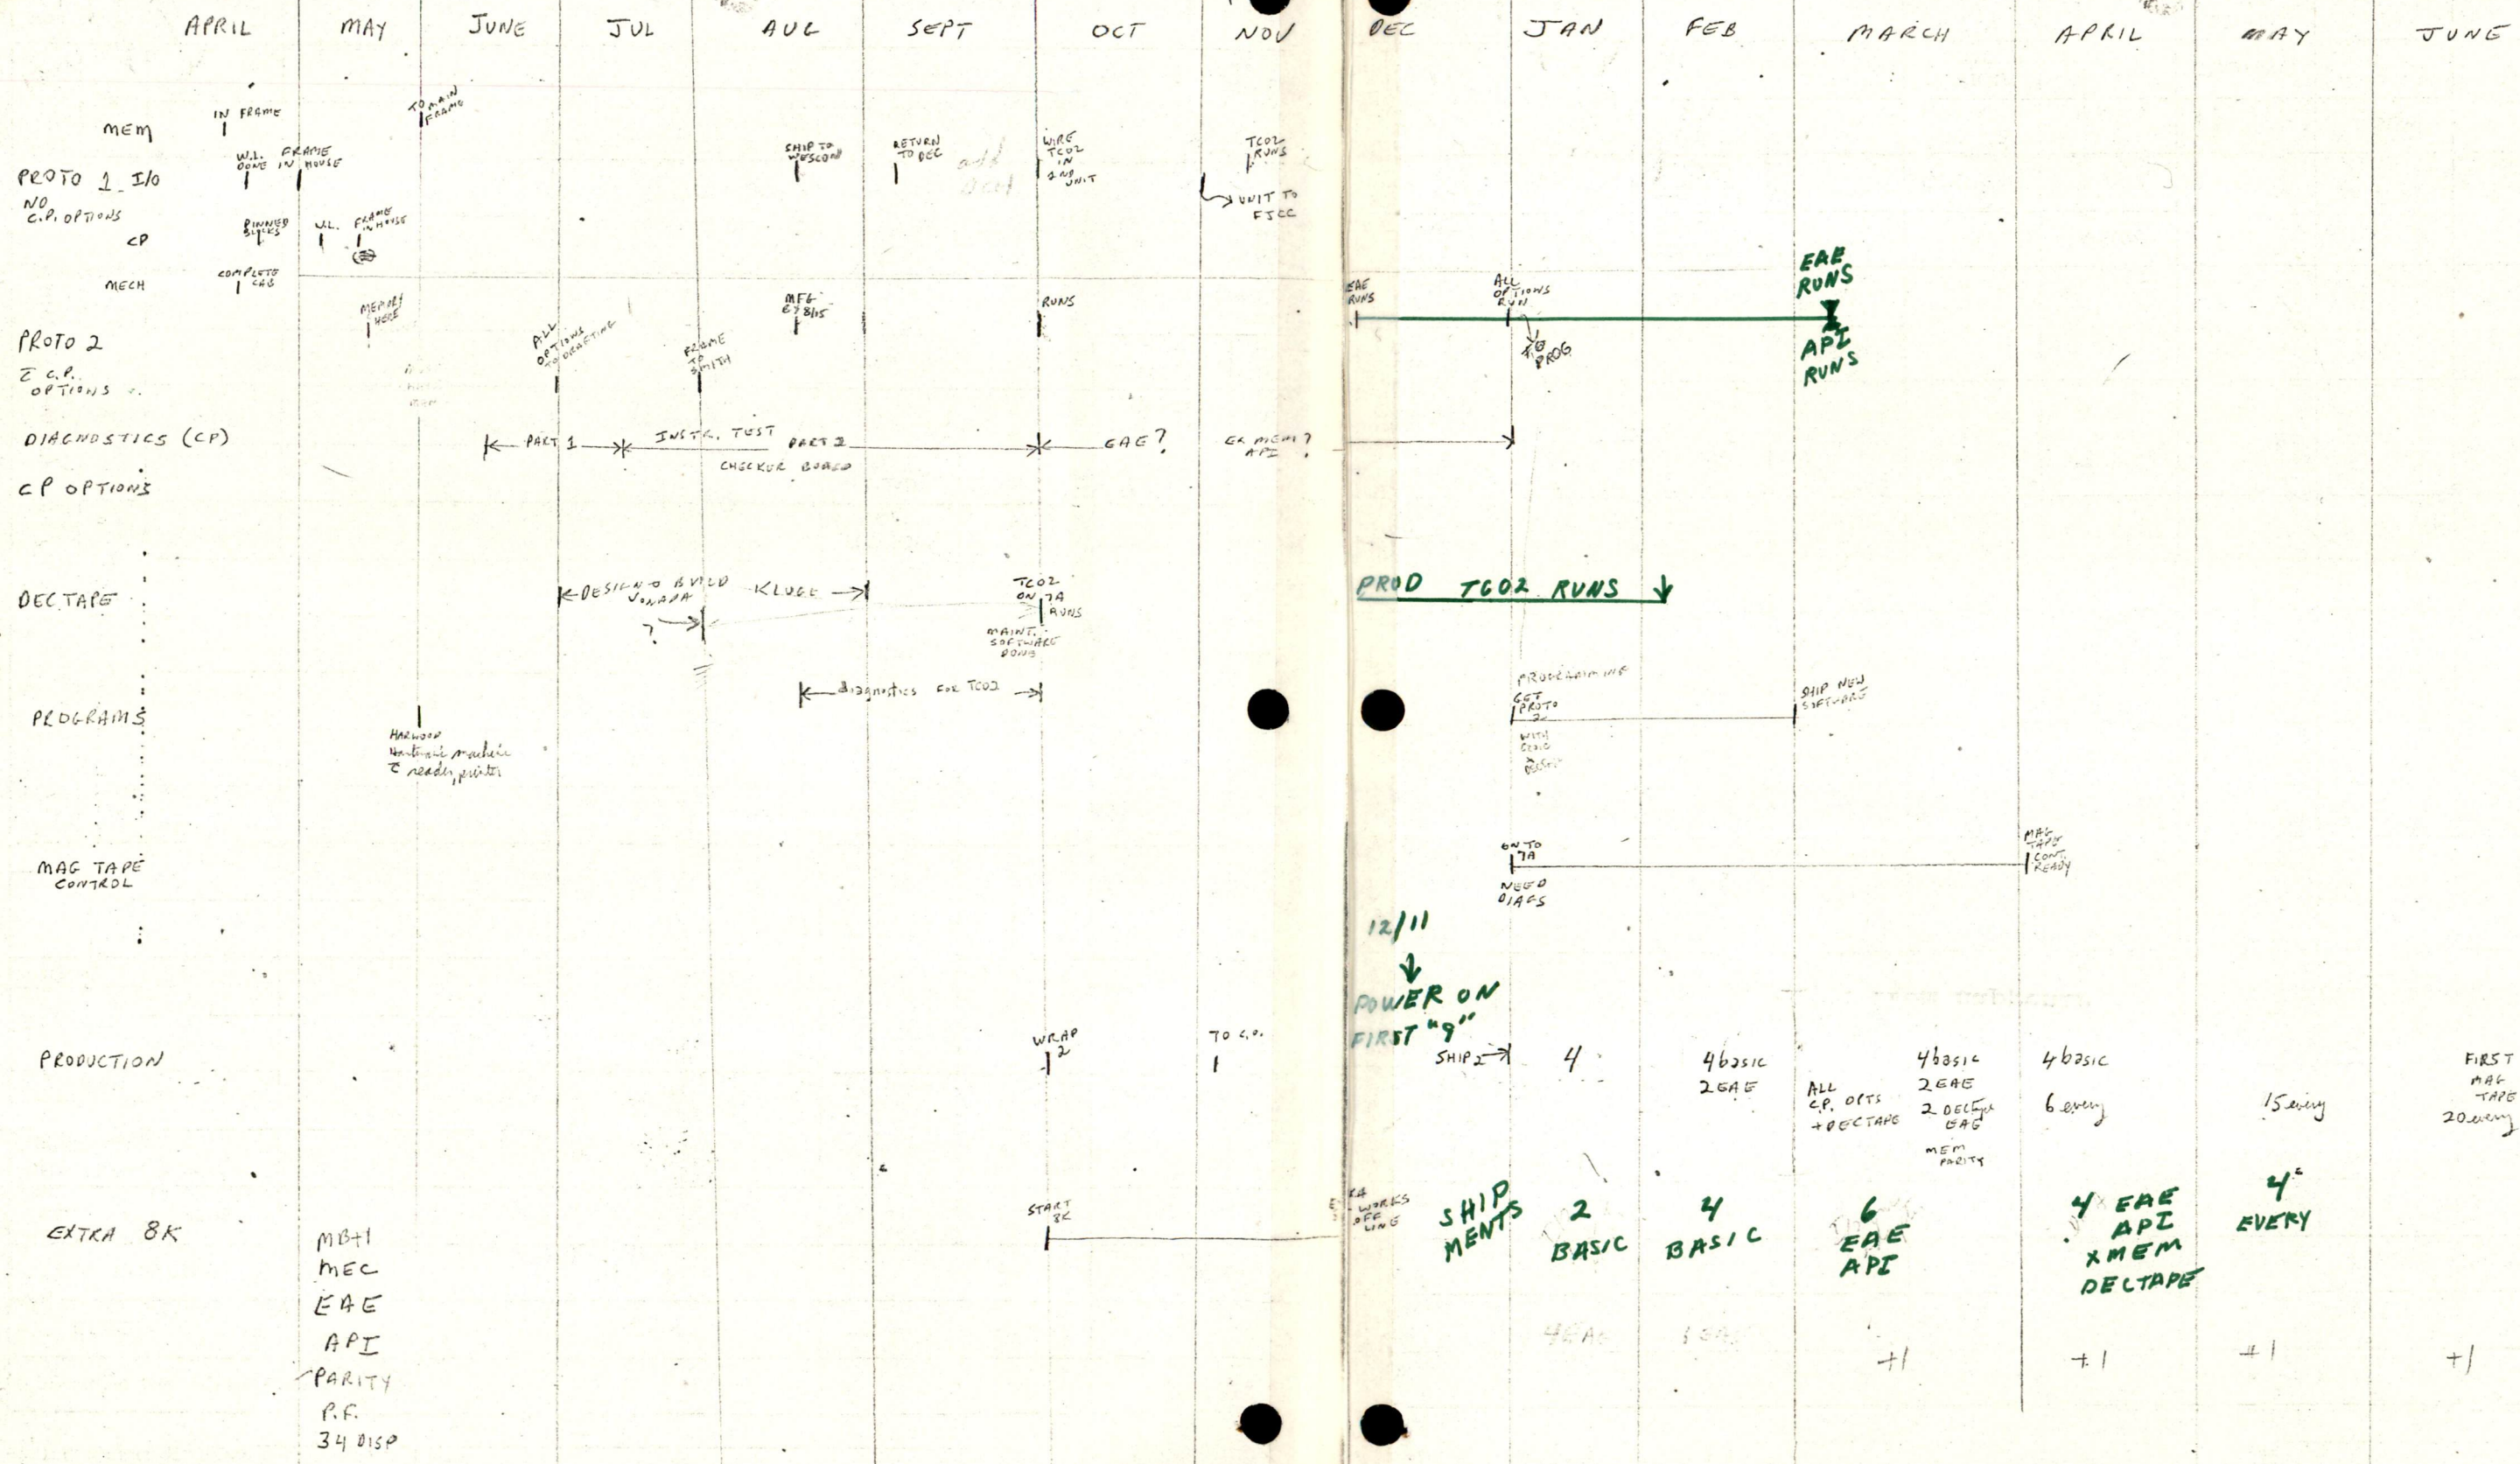 APRIL MAY JUNE JUL AUG SEPT OCT NOV DEC JAN FEB MARCH APRIL MAY JUNE
MEM
IN FRAME
TO MAIN
FRAME
PROTO 1 I/O
NO
C.P. OPTIONS
W.L. FRAME
DONE IN HOUSE
SHIP TO
WESCON
RETURN
TO DEC
WIRE
TC02
IN
2ND
UNIT
TC02
RUNS
UNIT TO
FJCC
CP
PINNED
BLOCKS
W.L.
FRAME
IN HOUSE
MECH
COMPLETE
CAB
PROTO 2
C̄ C.P.
OPTIONS
MEMORY
HERE
ALL
OPTIONS
TO DRAFTING
FRAME
TO
SMITH
MFG
BY 8/15
RUNS
EAE
RUNS
ALL
OPTIONS
RUN
TO
PROG
EAE
RUNS
API
RUNS
DIAGNOSTICS (CP)
PART 1
INSTR. TEST
PART 2
CHECKER BOARD
EAE?
EX MEM?
API ?
CP OPTIONS
DECTAPE
DESIGN & BUILD
KLUGE
?
TC02
ON 7A
RUNS
MAINT.
SOFTWARE
DONE
PROD TC02 RUNS
PROGRAMS
HARWOOD
machine
C̄ reader, printer
diagnostics FOR TC02
PROGRAMMING
GET
PROTO
2
WITH
SHIP NEW
SOFTWARE
MAG TAPE
CONTROL
ON TO
7A
NEED
DIAGS
MAG
TAPE
CONT.
READY
12/11
POWER ON
FIRST "9"
PRODUCTION
WRAP
2
TO C.O.
SHIP 2
4
4 basic
2 EAE
ALL
C.P. OPTS
+ DECTAPE
4 basic
2 EAE
2 DECtape
EAE
MEM
PARITY
4 basic
6 every
15 every
FIRST
MAG
TAPE
20 every
EXTRA 8K
START
8K
WORKS
OFF
LINE
SHIP
MENTS
2
BASIC
4
BASIC
6
EAE
API
4 EAE
API
XMEM
DECTAPE
4
EVERY
MB+1
MEC
EAE
API
PARITY
P.F.
34 DISP
4 EAE
+1
+1
+1
+1